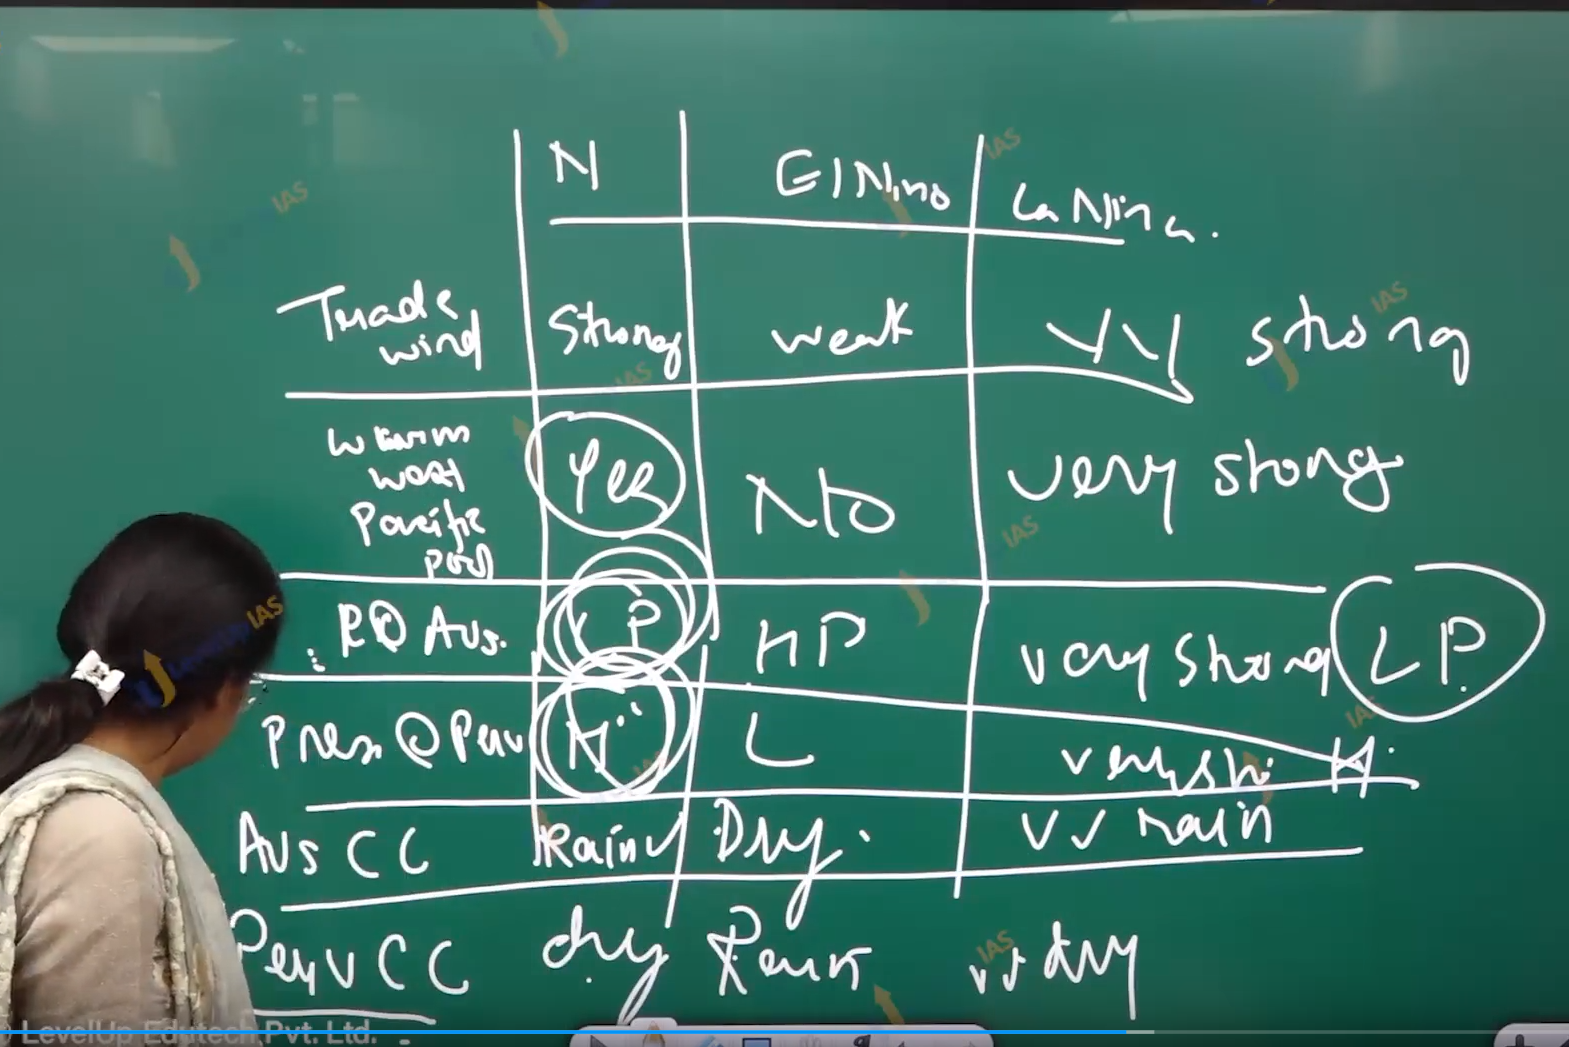 N El Nino La Nina.
Trade wind Strong weak VV strong
Warm west Pacific pool Yes No very strong
P@ Aus. LP HP very strong LP
Pres @ Peru H L very str H
Aus CC Rain Dry. VV rain
Peru CC dry Rain VV dry
LevelUp IAS
IAS
IAS
IAS
IAS
IAS
IAS
IAS
IAS
LevelUp Edutech Pvt. Ltd.